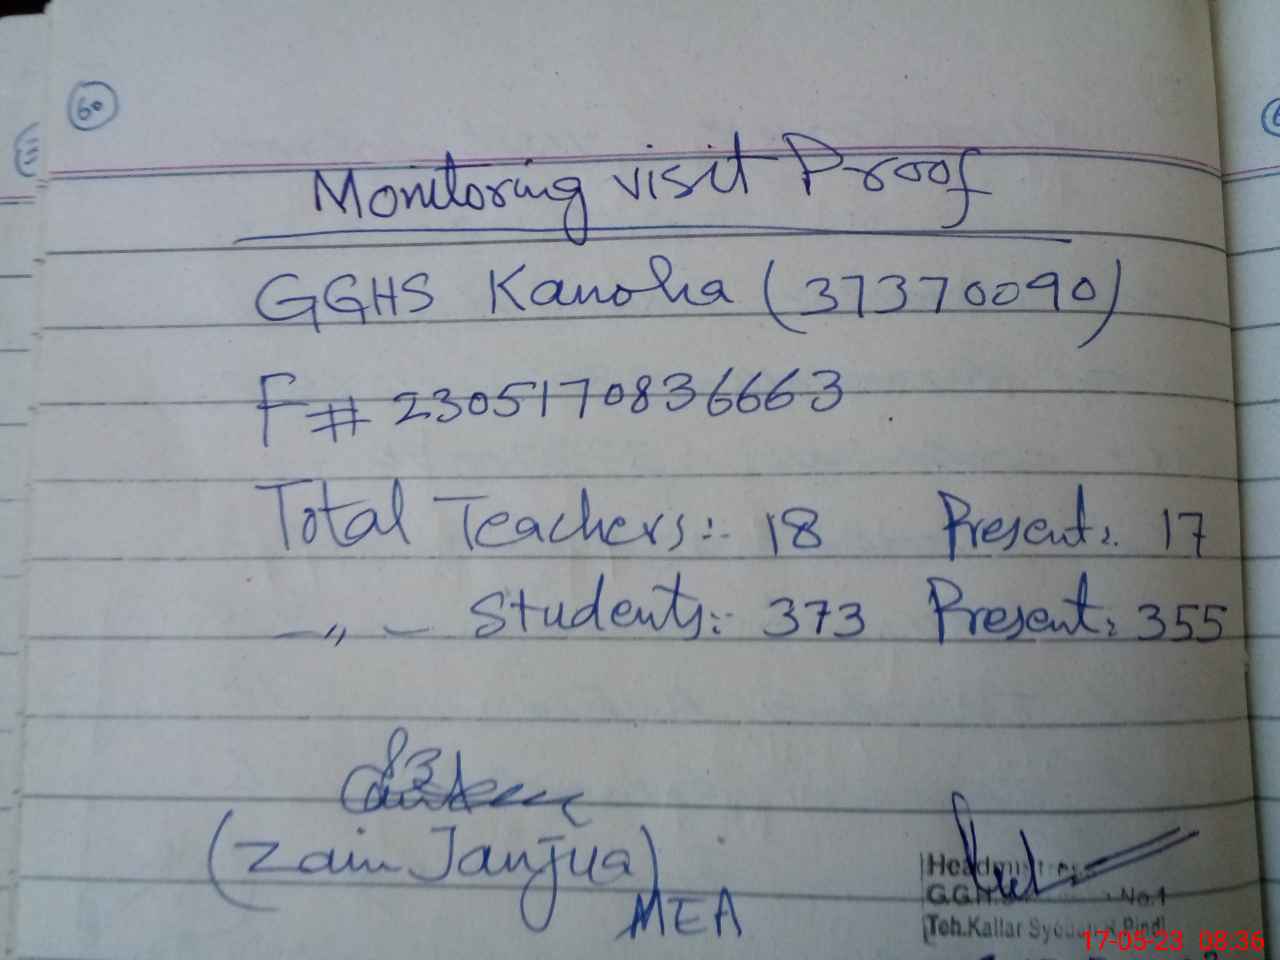 60
Monitoring visit Proof
GGHS Kanoha (37370090)
F# 2305170836663
Total Teachers:- 18 Present: 17
-〃- Students:- 373 Present: 355
(Zain Janjua)
MEA
No.1
Teh.Kallar
17-05-23 08:36